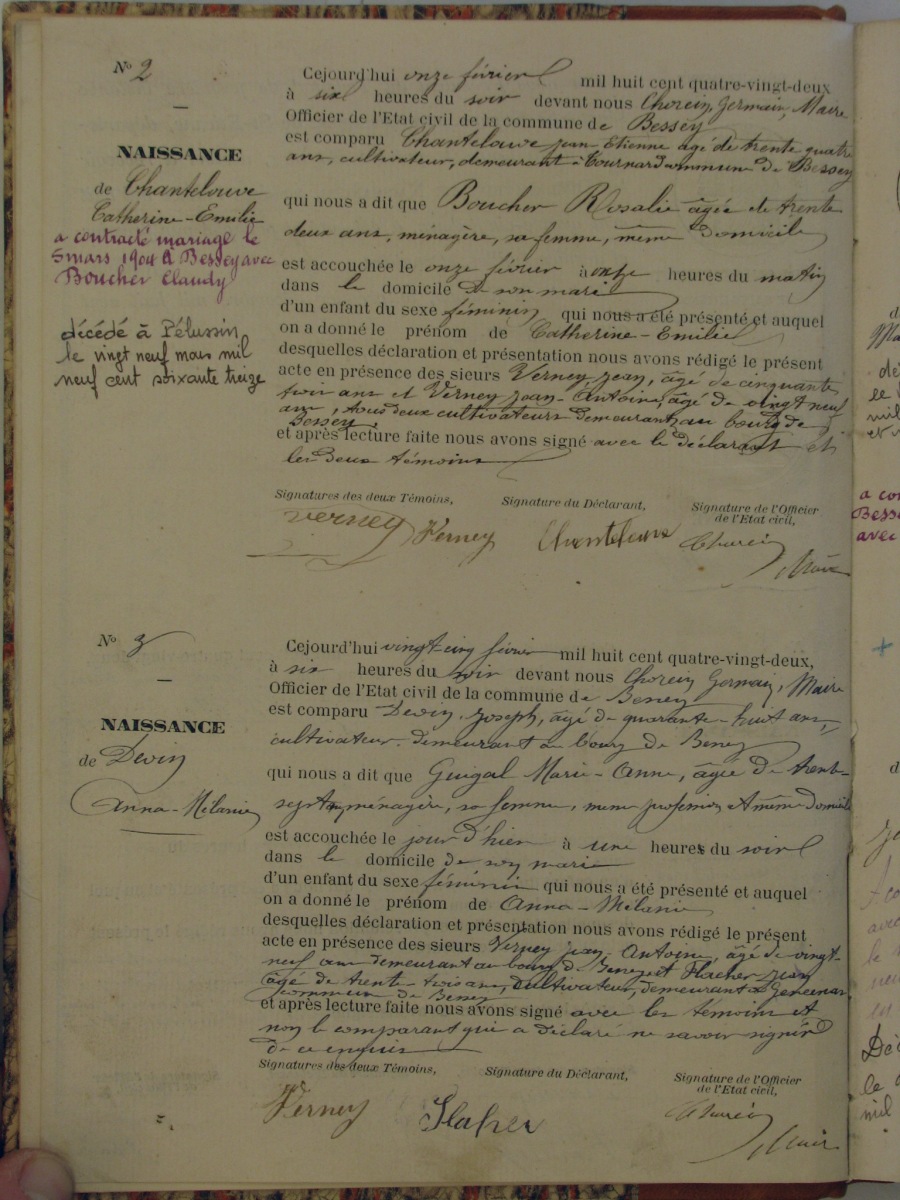 N° 2
NAISSANCE
de Chantelouve
Catherine-Emilie
a contracté mariage le
5 mars 1904 à Bessey avec
Boucher Claudy
décédé à Pélussin
le vingt neuf mars mil
neuf cent soixante treize
Cejourd'hui onze février mil huit cent quatre-vingt-deux
à six heures du soir devant nous Chorein, Germain, Maire
Officier de l'Etat civil de la commune de Bessey
est comparu Chantelouve jean Etienne agé de trente quatre
ans, cultivateur, demeurant à commune de Bessey
qui nous a dit que Boucher Rosalie âgée de trente
deux ans, ménagère, sa femme, même domicile
est accouchée le onze février à onze heures du matin
dans le domicile de son mari
d'un enfant du sexe féminin qui nous a été présenté et auquel
on a donné le prénom de Catherine-Emilie
desquelles déclaration et présentation nous avons rédigé le présent
acte en présence des sieurs Verney jean, âgé de cinquante
trois ans et Verney jean-Antoine, âgé de vingt neuf
ans, tous deux cultivateurs demeurant au bourg de
Bessey
et après lecture faite nous avons signé avec le déclarant et
les deux témoins
Signatures des deux Témoins, Signature du Déclarant, Signature de l'Officier
de l'Etat civil,
Verney Verney Chantelouve Chorein
Maire
N° 3
NAISSANCE
de Devin
Anna-Mélanie
Cejourd'hui vingt-cinq février mil huit cent quatre-vingt-deux,
à six heures du soir devant nous Chorein Germain, Maire
Officier de l'Etat civil de la commune de Bessey
est comparu Devin Joseph, âgé de quarante-huit ans,
cultivateur demeurant au bourg de Bessey
qui nous a dit que Guigal Marie-Anne, âgée de trente-
sept ans, ménagère, sa femme, même profession et même domicile
est accouchée le jour d'hier à une heures du soir
dans le domicile de son mari
d'un enfant du sexe féminin qui nous a été présenté et auquel
on a donné le prénom de Anna-Mélanie
desquelles déclaration et présentation nous avons rédigé le présent
acte en présence des sieurs Verney jean Antoine, âgé de vingt-
neuf ans demeurant au bourg de Bessey et Flacher jean
âgé de trente-trois ans, cultivateur, demeurant à
commune de Bessey
et après lecture faite nous avons signé avec les témoins et
non le comparant qui a déclaré ne savoir signer
de ce enquis
Signatures des deux Témoins, Signature du Déclarant, Signature de l'Officier
de l'Etat civil,
Verney Flacher Chorein
Maire